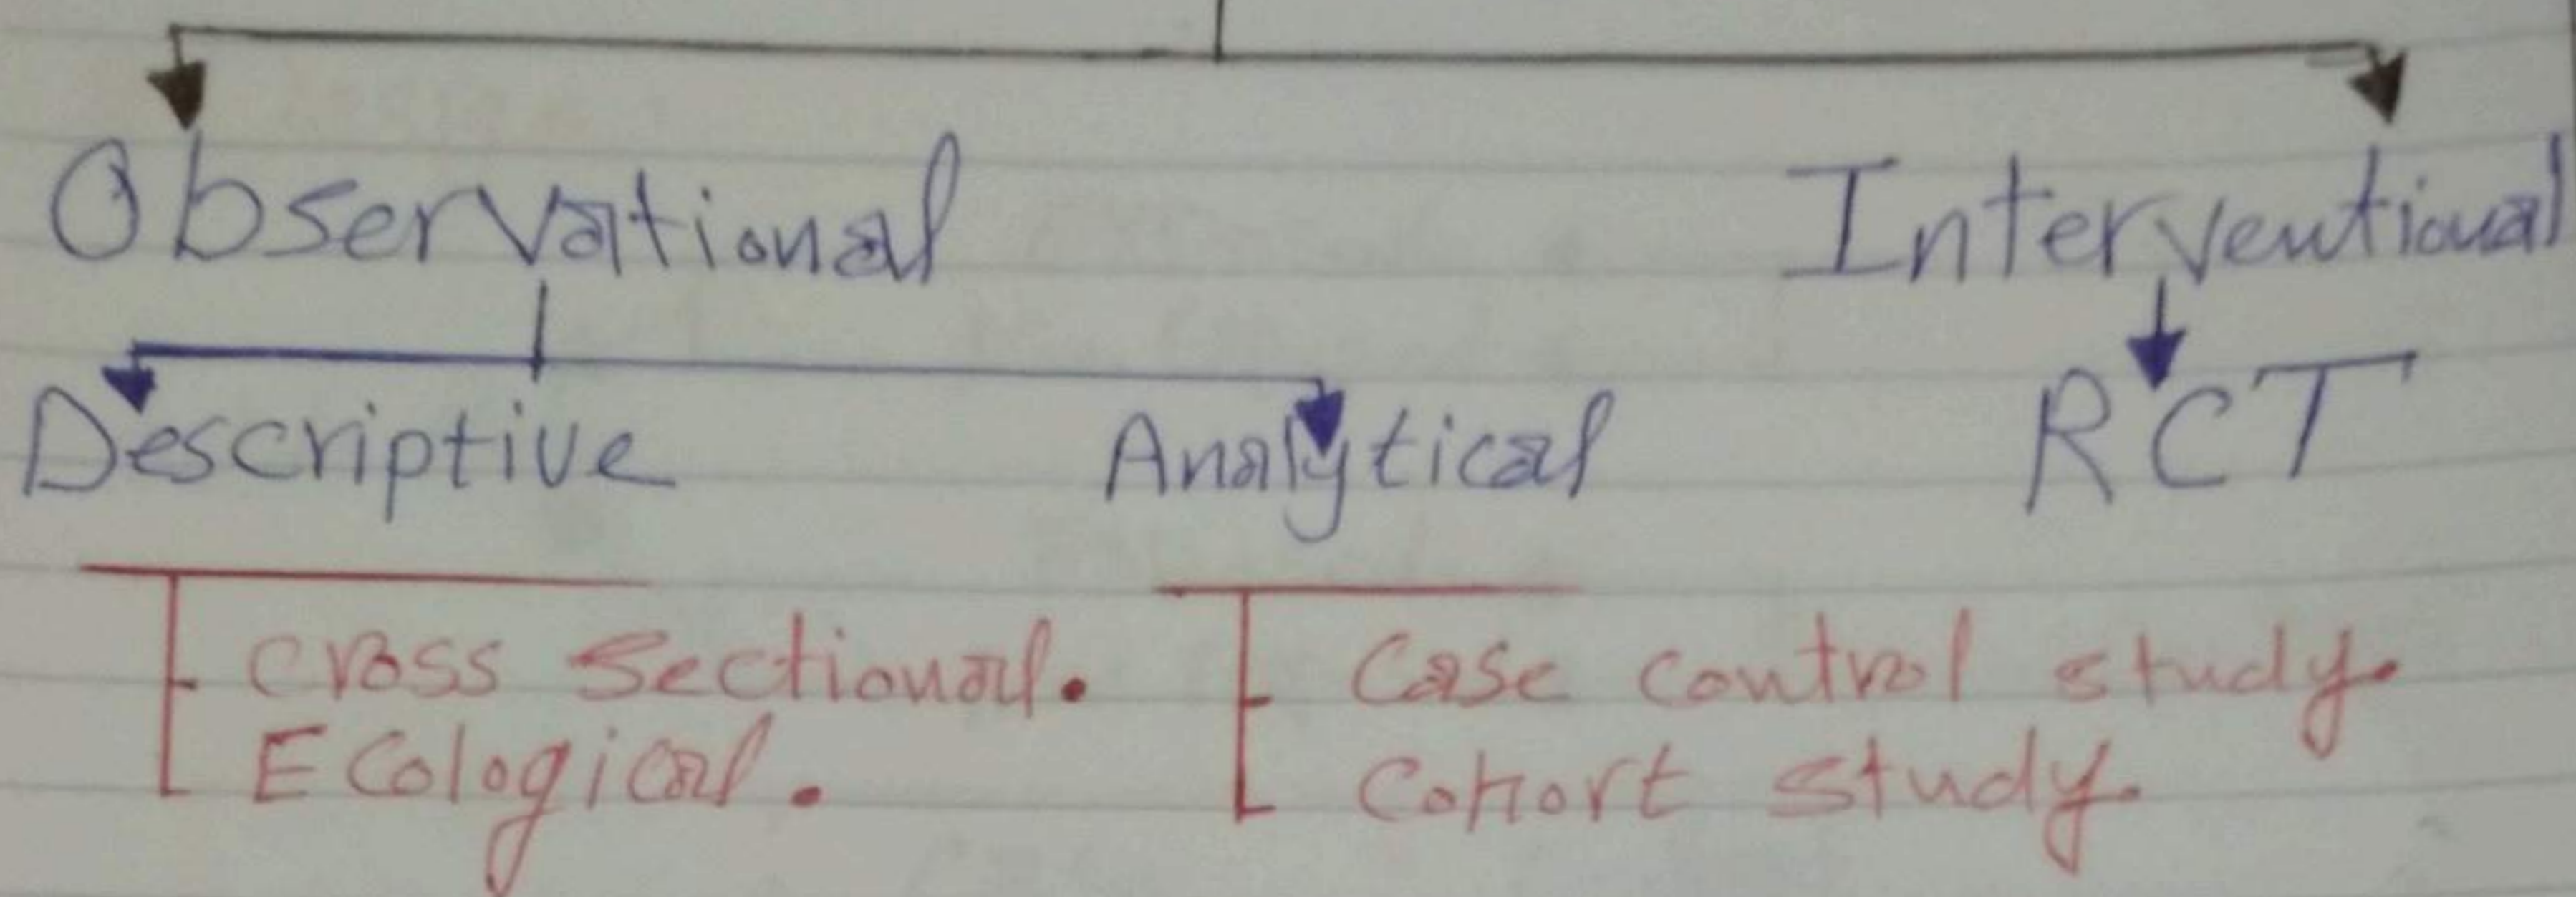 Observational Interventional
Descriptive Analytical RCT
Cross Sectional. Case control study.
Ecological. Cohort study.